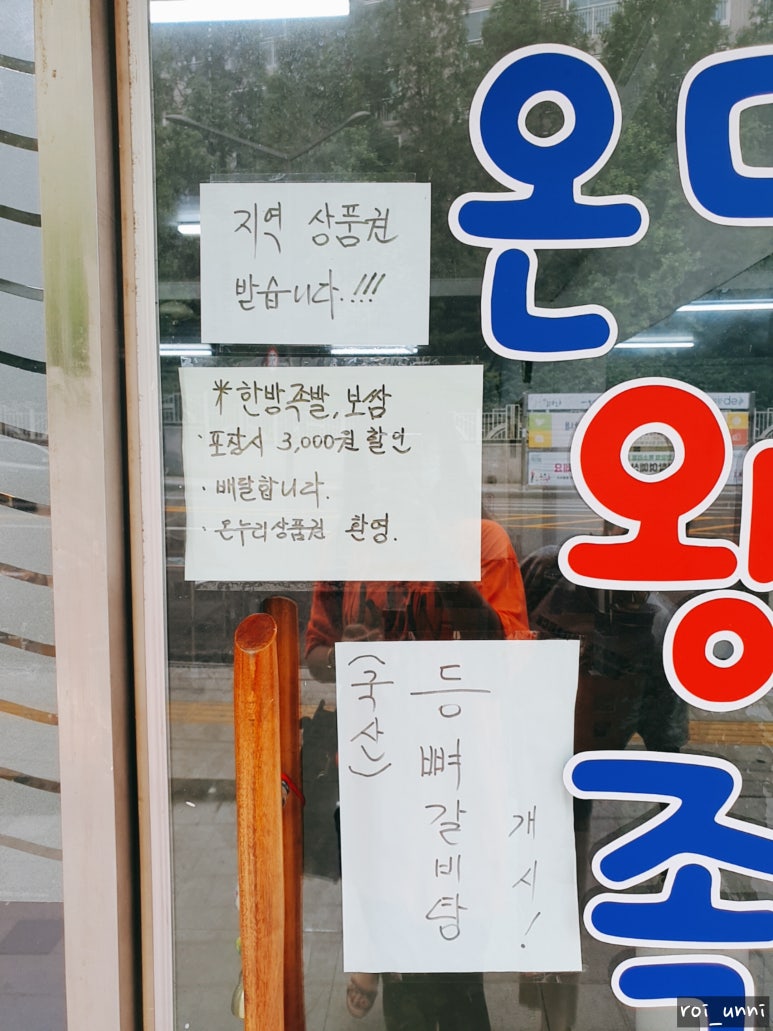 지역 상품권
받습니다.!!!
*한방족발, 보쌈
· 포장시 3,000원 할인
· 배달합니다.
· 온누리상품권 환영.
(국산)
등뼈갈비탕
개시!
온
왕
족
roi_unni